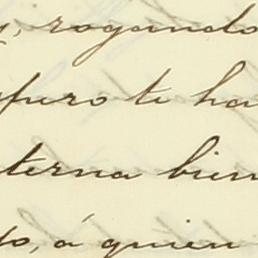 , rogando
puro te ha
terna bien
do, á quien